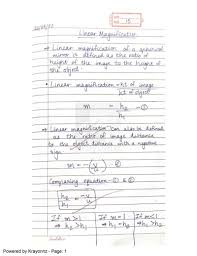 15
Linear Magnification
→ Linear magnification of a spherical
mirror is defined as the ratio of
height of the image to the height of
the object
→ Linear magnification = ht of image
ht of object
m = h₂ - ①
h₁
→ Linear magnification can also be defined
as the ratio of image distance
to the object distance with a negative
sign
m = - (v/u) - ②
Comparing equation - ① & ②
h₂/h₁ = -v/u
If m > 1 | If m = 1 | If m < 1
→ h₂ > h₁ | → h₂ = h₁ | → h₂ < h₁
Powered by Krayonnz - Page: 1